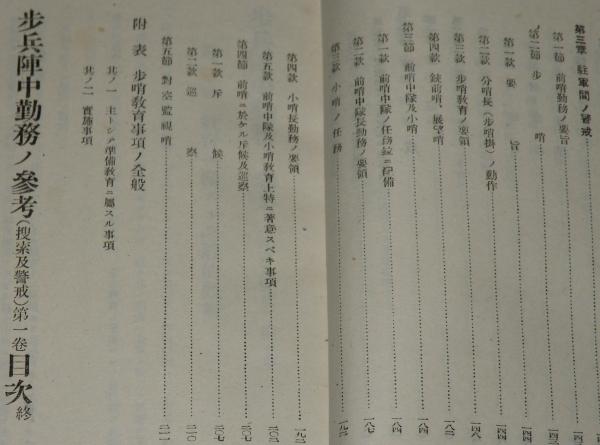 第三章 駐軍間ノ警戒
第一節 前哨勤務ノ要旨
第二節 步 哨
第一款 要 旨 一四四
第二款 分哨長(步哨掛)ノ動作 一四四
第三款 步哨敎育ノ要領 一四八
第四款 銃前哨、展望哨
第三節 前哨中隊及小哨
第一款 前哨中隊ノ任務竝ニ配備 一八四
第二款 前哨中隊長勤務ノ要領 一八七
第三款 小哨ノ任務
第四款 小哨長勤務ノ要領
第五款 前哨中隊及小哨敎育上特ニ著意スベキ事項 二〇三
第四節 前哨ニ於ケル斥候及巡察 二〇七
第一款 斥 候 二〇七
第二款 巡 察 二一〇
第五節 對空監視哨 二一一
附 表 步哨敎育事項ノ全般
其ノ一 主トシテ準備敎育ニ屬スル事項
其ノ二 實施事項
步兵陣中勤務ノ參考(搜索及警戒)第一卷目次終